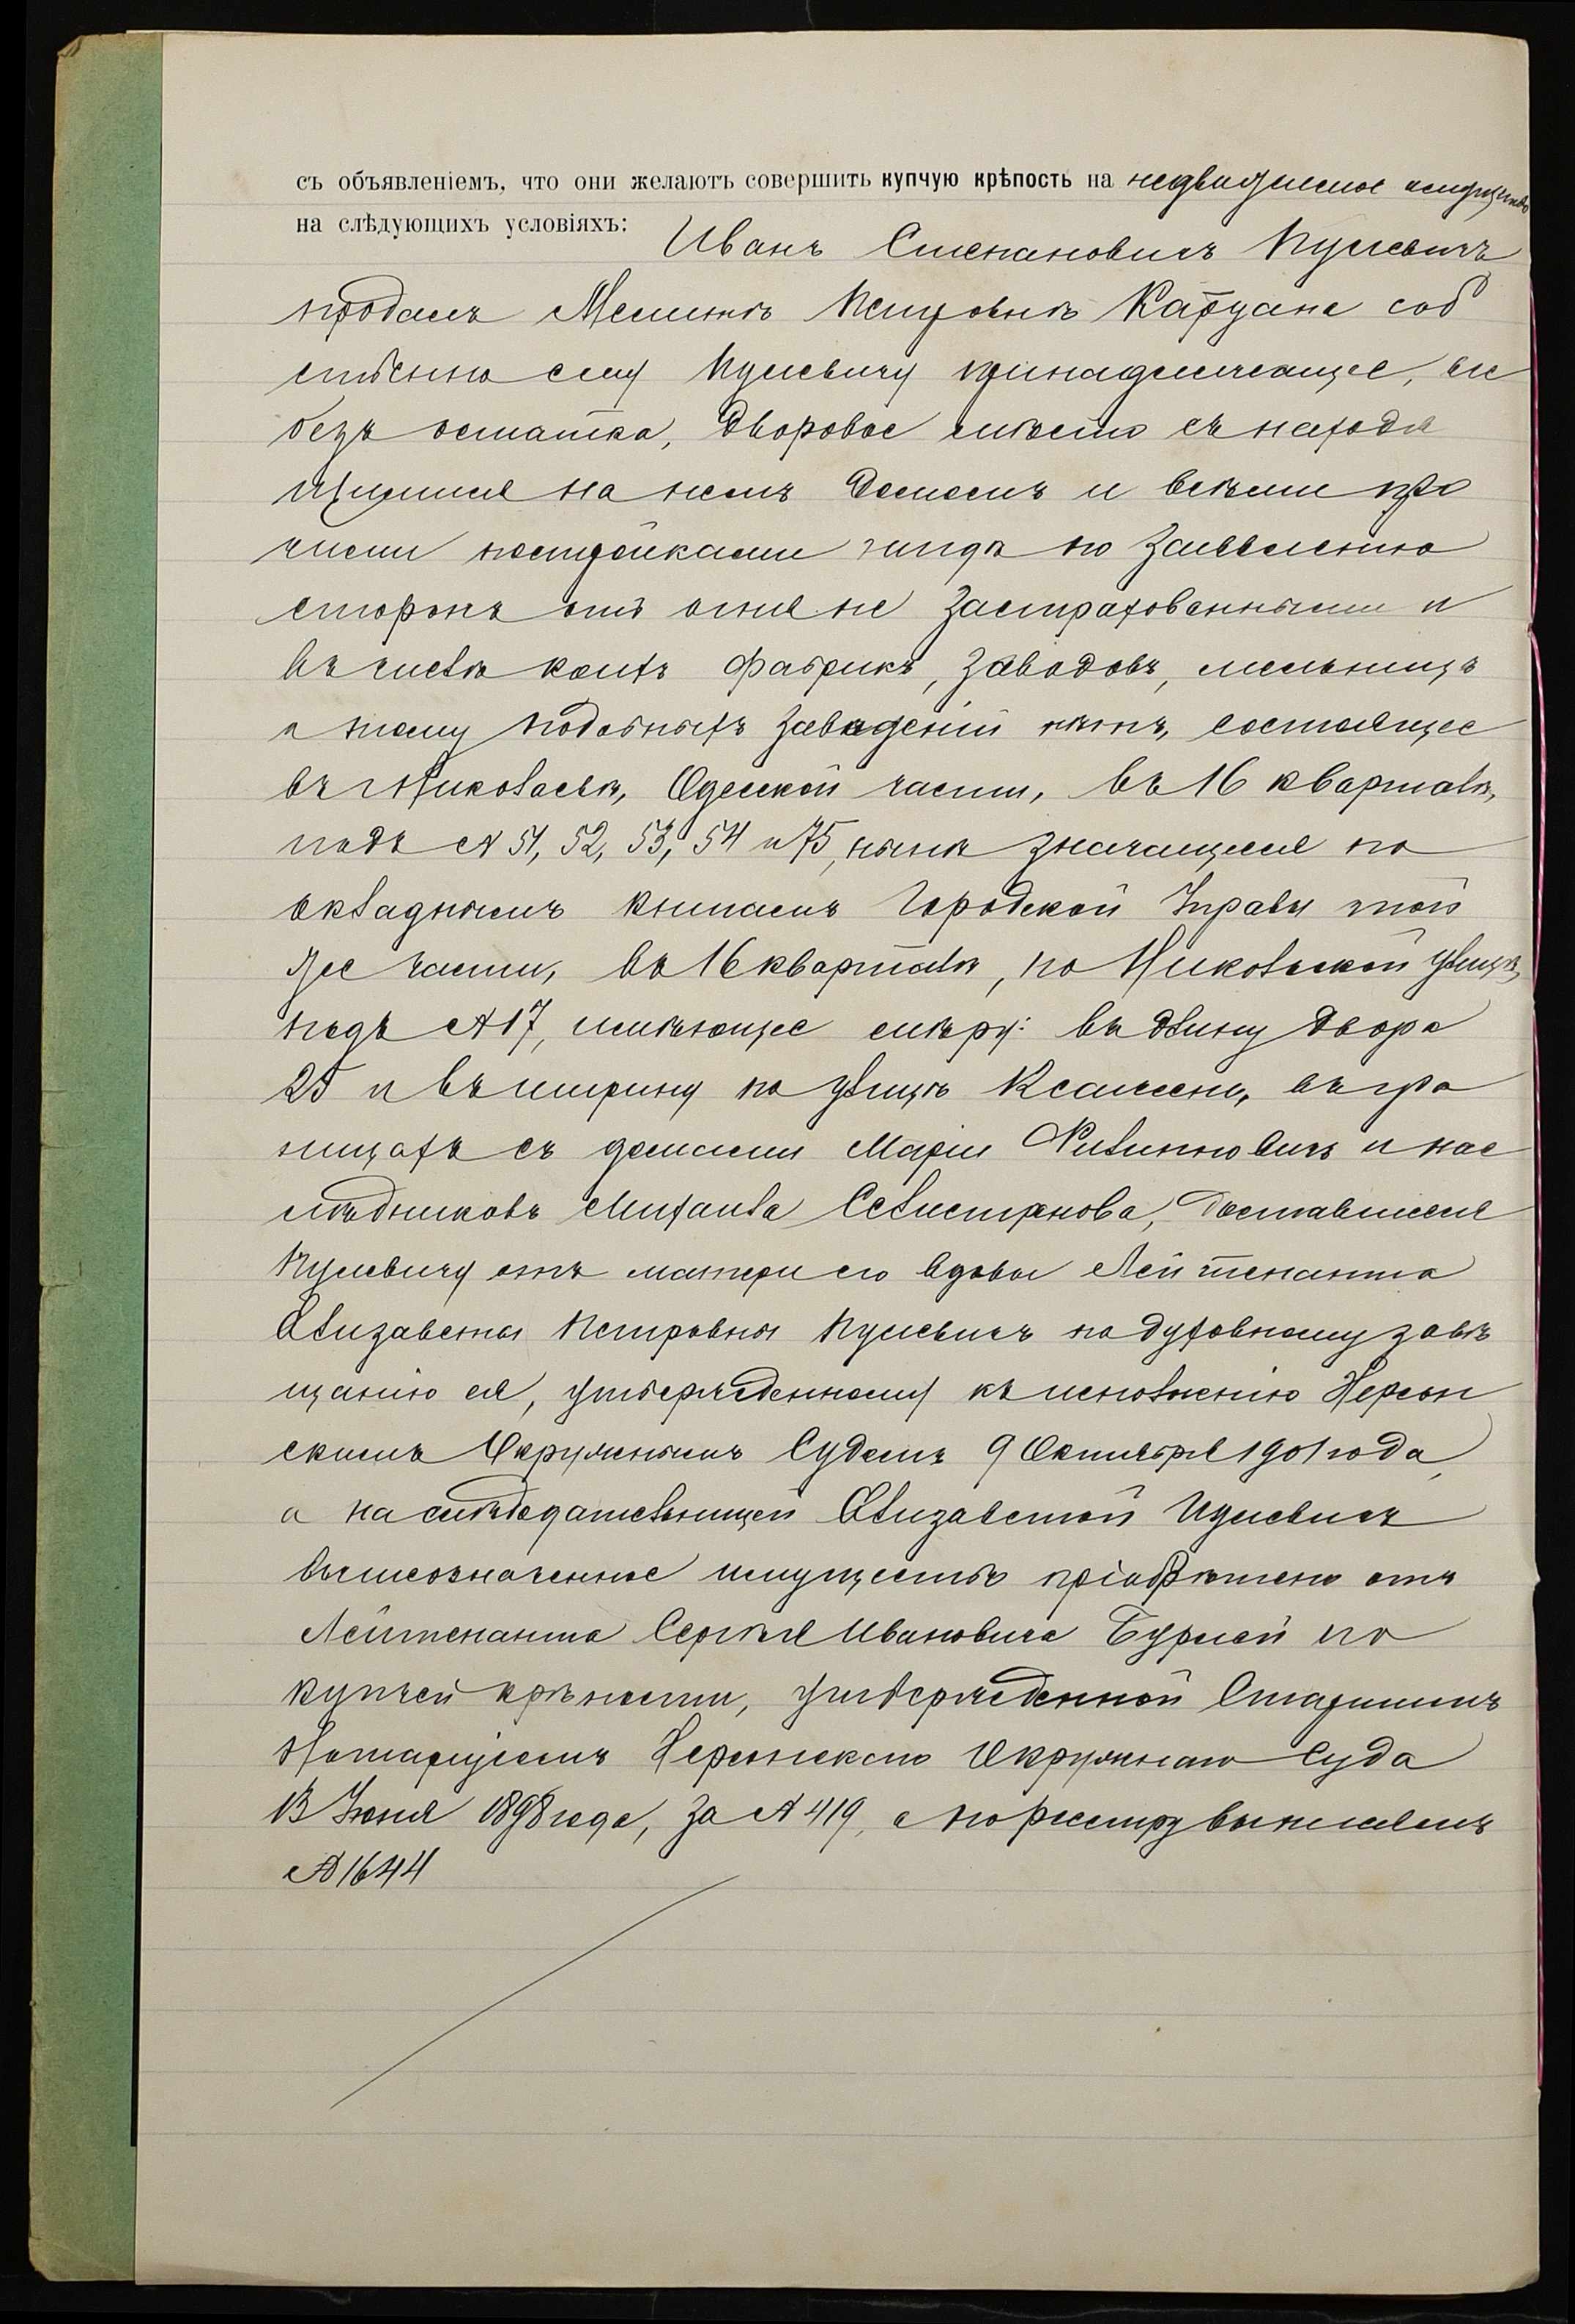 съ объявленіемъ, что они желаютъ совершить купчую крѣпость на недвижимое имущество
на слѣдующихъ условіяхъ:
Иванъ Степановичъ Пулевичъ
продалъ Петровнѣ соб
ственно ему Пулевичу принадлежащее, все
безъ остатка, дворовое мѣсто съ находя
щимися на немъ домомъ и всѣми про
чими постройками нигдѣ по заявленію
сторонъ отъ огня не застрахованными и
въ числѣ коихъ фабрикъ, заводовъ, мельницъ
и тому подобныхъ заведеній нѣтъ, состоящее
въ г. Николаевѣ, Одесской части, въ 16 кварталѣ,
подъ № 51, 52, 53, 54 и 75, нынѣ значащееся по
окладнымъ книгамъ Городской Управы той
же части, въ 16 кварталѣ, по Никольской улицѣ,
подъ № 17, имѣющее мѣру: въ длину двора
25 и въ ширину по улицѣ сажени, въ гра
ницахъ съ домами Маріи Филипповичъ и нас
лѣдниковъ Михаила Селистранова, доставшееся
Пулевичу отъ матери его вдовы Лейтенанта
Елизаветы Петровны Пулевичъ по духовному завѣ
щанію ея, утвержденному къ исполненію Херсон
скимъ Окружнымъ Судомъ 9 Октября 1901 года,
а наслѣдодательницей Елизаветой Пулевичъ
вышеозначенное имущество пріобрѣтено отъ
Лейтенанта Сергѣя Ивановича Бурлей по
купчей крѣпости, утвержденной Старшимъ
Нотаріусомъ Херсонскаго Окружнаго Суда
13 Іюня 1898 года, за № 419, а по реестру
№ 1644